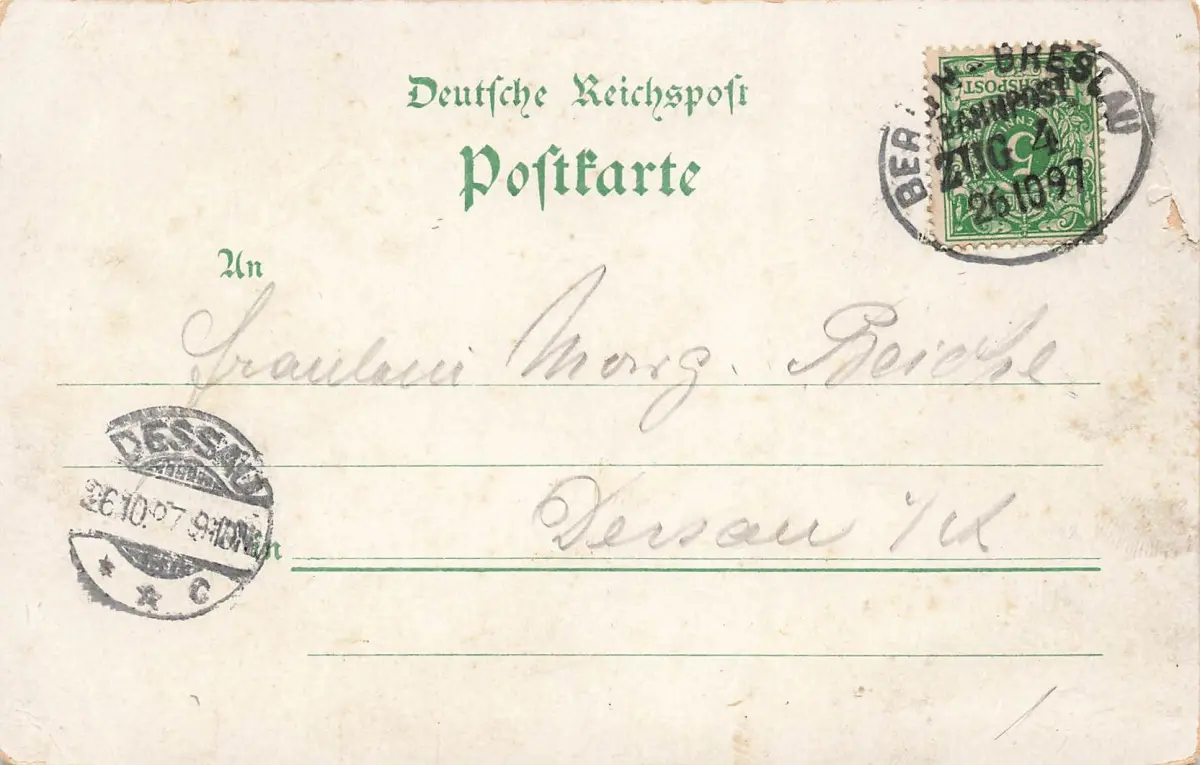 Deutsche Reichspost
Postkarte
BERLIN - BRESLAU
BAHNPOST
ZUG 4
26 10 97
REICHSPOST
5
PFENNIG
An
Fräulein Marg. Reiche
DESSAU
26.10.97 9-10N.
* * C
in
Dessau i/A